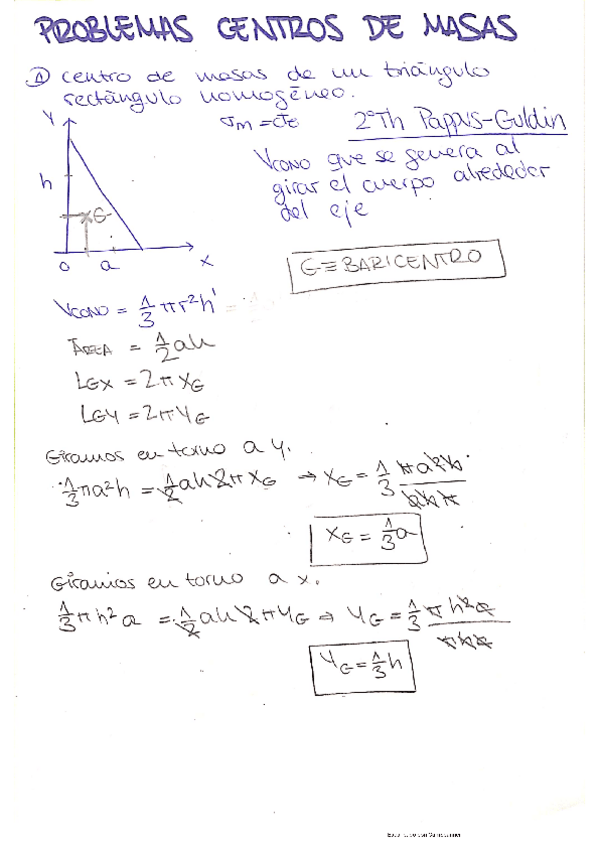 PROBLEMAS CENTROS DE MASAS
① centro de masas de un triángulo
rectángulo homogéneo.
Y
σm = cte
2º Th Pappus-Guldin
Vcono que se genera al
girar el cuerpo alrededor
del eje
h
G
0 a x
G ≡ BARICENTRO
Vcono = 1/3 πr²h
ÁREA = 1/2 ah
LGX = 2π XG
LGY = 2π YG
Giramos en torno a y.
1/3 πa²h = 1/2 ah 2π XG → XG = 1/3 πa²h / ahπ
XG = 1/3 a
Giramos en torno a x.
1/3 πh²a = 1/2 ah 2π YG → YG = 1/3 πh²a / πha
YG = 1/3 h